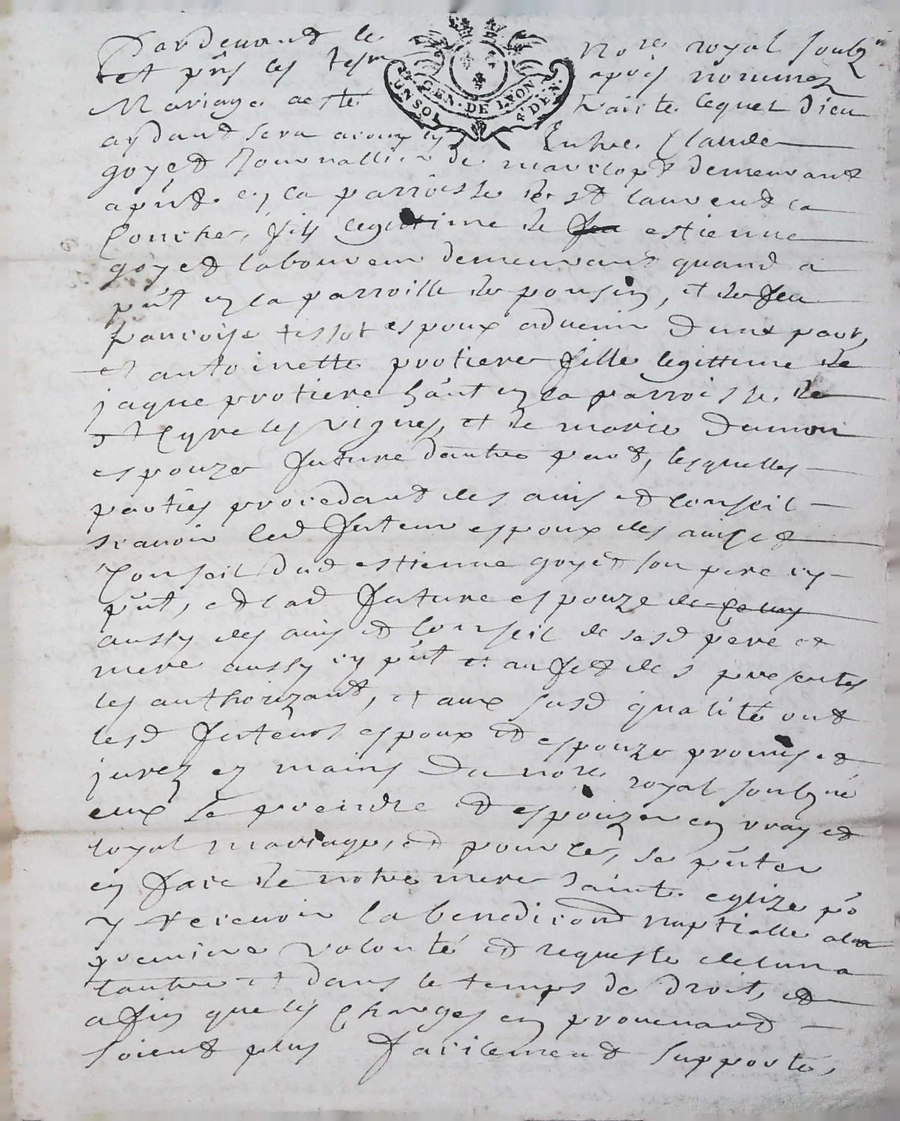 Pardevant le No.re royal soubz.
et pñs les tesm apres nommez
Mariage a esté traité lequel Dieu
aydant sera acomply Entre Claude
GEN. DE LYON
UN SOL 4 DEN.
goyet Journallier de demeurant
apñt en la parroisse de St laurent la
Conche, fils legitime de feu estienne
goyet laboureur demeurant quand a
pñt en la parroisse de pousin, et de feu
francoise tissot espoux advenir d'une part,
et antoinette protiere fille legittime de
jaque protiere ha'nt en la parroisse de
St Cyre les Vignes, et de marie Dumon
espouze future d'autre part, lesquelles
parties procedant des avis et Conseil
scavoir led futeur espoux des avis et
Conseil dud estienne goyet son pere icy
pñt, et lad future espouze de
aussy des avis et Conseil de sesd pere et
mere aussy icy pñt et au fet des presentes
les authorizant, et aux susd qualité ont
lesd futeurs espoux et espouze promis et
jurez es mains du no.re royal soubzné
eux se preindre et espouzer en vray et
loyal mariage, et pour ce, se pñter
en face de notre mere Sainte eglize po
y recevoir la benedicond nuptialle a la
premiere volonté et requeste de luna
lautre et dans le temps de droit, et
affin que les Charges en provenant
soient plus facilement supporté,